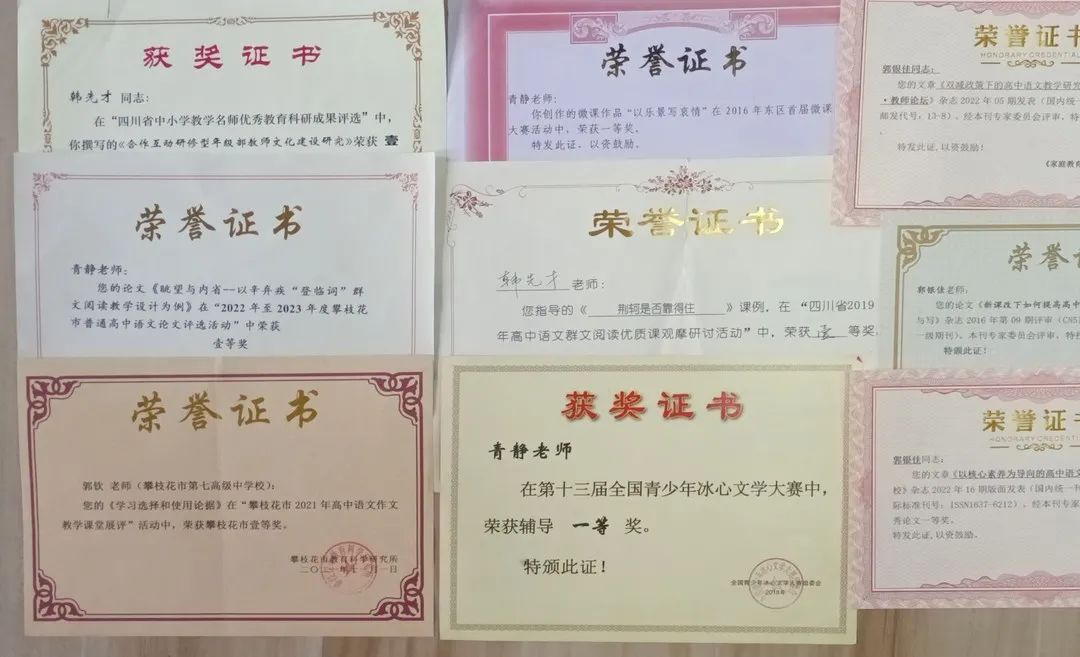 获奖证书
韩先才 同志：
在“四川省中小学教学名师优秀教育科研成果评选”中，
你撰写的《合作互动研修型年级部教师文化建设研究》荣获 壹
荣誉证书
青静老师：
你创作的微课作品“以乐景写哀情”在 2016 年东区首届微课
大赛活动中，荣获一等奖。
特发此证，以资鼓励。
荣誉证书
HONORARY CREDENTIAL
郭银佳同志：
你的文章《双减政策下的高中语文教学研究
·教师论坛》杂志 2022 年 05 期发表（国内统一
邮发代号：13-8），经本刊专家委员会评审，特
特发此证，以资鼓励！
《家庭教育
荣誉证书
青静老师：
您的论文《眺望与内省--以辛弃疾“登临词”群
文阅读教学设计为例》在“2022 年至 2023 年度攀枝花
市普通高中语文论文评选活动”中荣获
壹等奖
荣誉证书
韩先才 老师：
您指导的《 荆轲是否靠得住 》课例，在“四川省2019
年高中语文群文阅读优质课观摩研讨活动”中，荣获 壹 等奖，
荣誉证
郭银佳老师：
您的论文《新课改下如何提高高中
与写》杂志 2016 年第 09 期评审（CN51
一级期刊）。本刊专家委员会评审，特
特颁此证！
荣誉证书
郭钦 老师（攀枝花市第七高级中学校）：
您的《学习选择和使用论据》在“攀枝花市 2021 年高中语文作文
教学课堂展评”活动中，荣获攀枝花市壹等奖。
攀枝花市教育科学研究所
获奖证书
青静老师
在第十三届全国青少年冰心文学大赛中，
荣获辅导 一等 奖。
特颁此证！
全国青少年冰心文学大赛组委会
2018年
荣誉证
HONORARY CREDENTIAL
郭银佳同志：
你的文章《以核心素养为导向的高中语文
校》杂志 2022 年 16 期版面发表（国内统一
际标准刊号：ISSN1637-6212），经本刊专家
秀论文一等奖。
特发此证，以资鼓励。